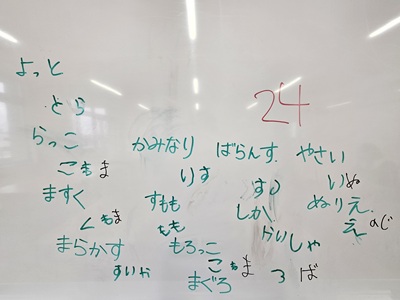 よっと
とら
らっこ
ますく
まらかす
すいか
24
かみなり
りす
すもも
もも
もろっこ
まぐろ
ばらんす
しか
かいしゃ
ろば
やさい
いぬ
ぬりえ